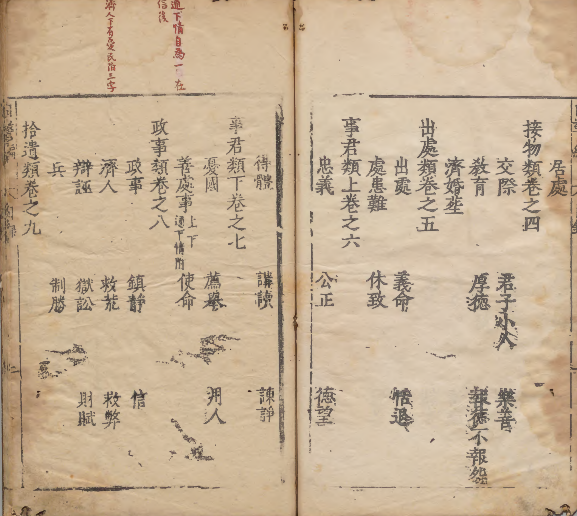 居處
接物類卷之四
交際 君子小人 樂善
教育 厚德 報德不報怨
濟婚葬
出處類卷之五
出處 義命 恬退
處患難 休致
事君類上卷之六
忠義 公正 德望
得體 講讀 諫諍
事君類下卷之七
憂國 薦舉 用人
善處事上下 通下情附 使命
政事類卷之八
政事 鎮靜 信
濟人 救荒 救弊
辯誣 獄訟 財賦
兵 制勝
拾遺類卷之九
通下情自為一 在信後